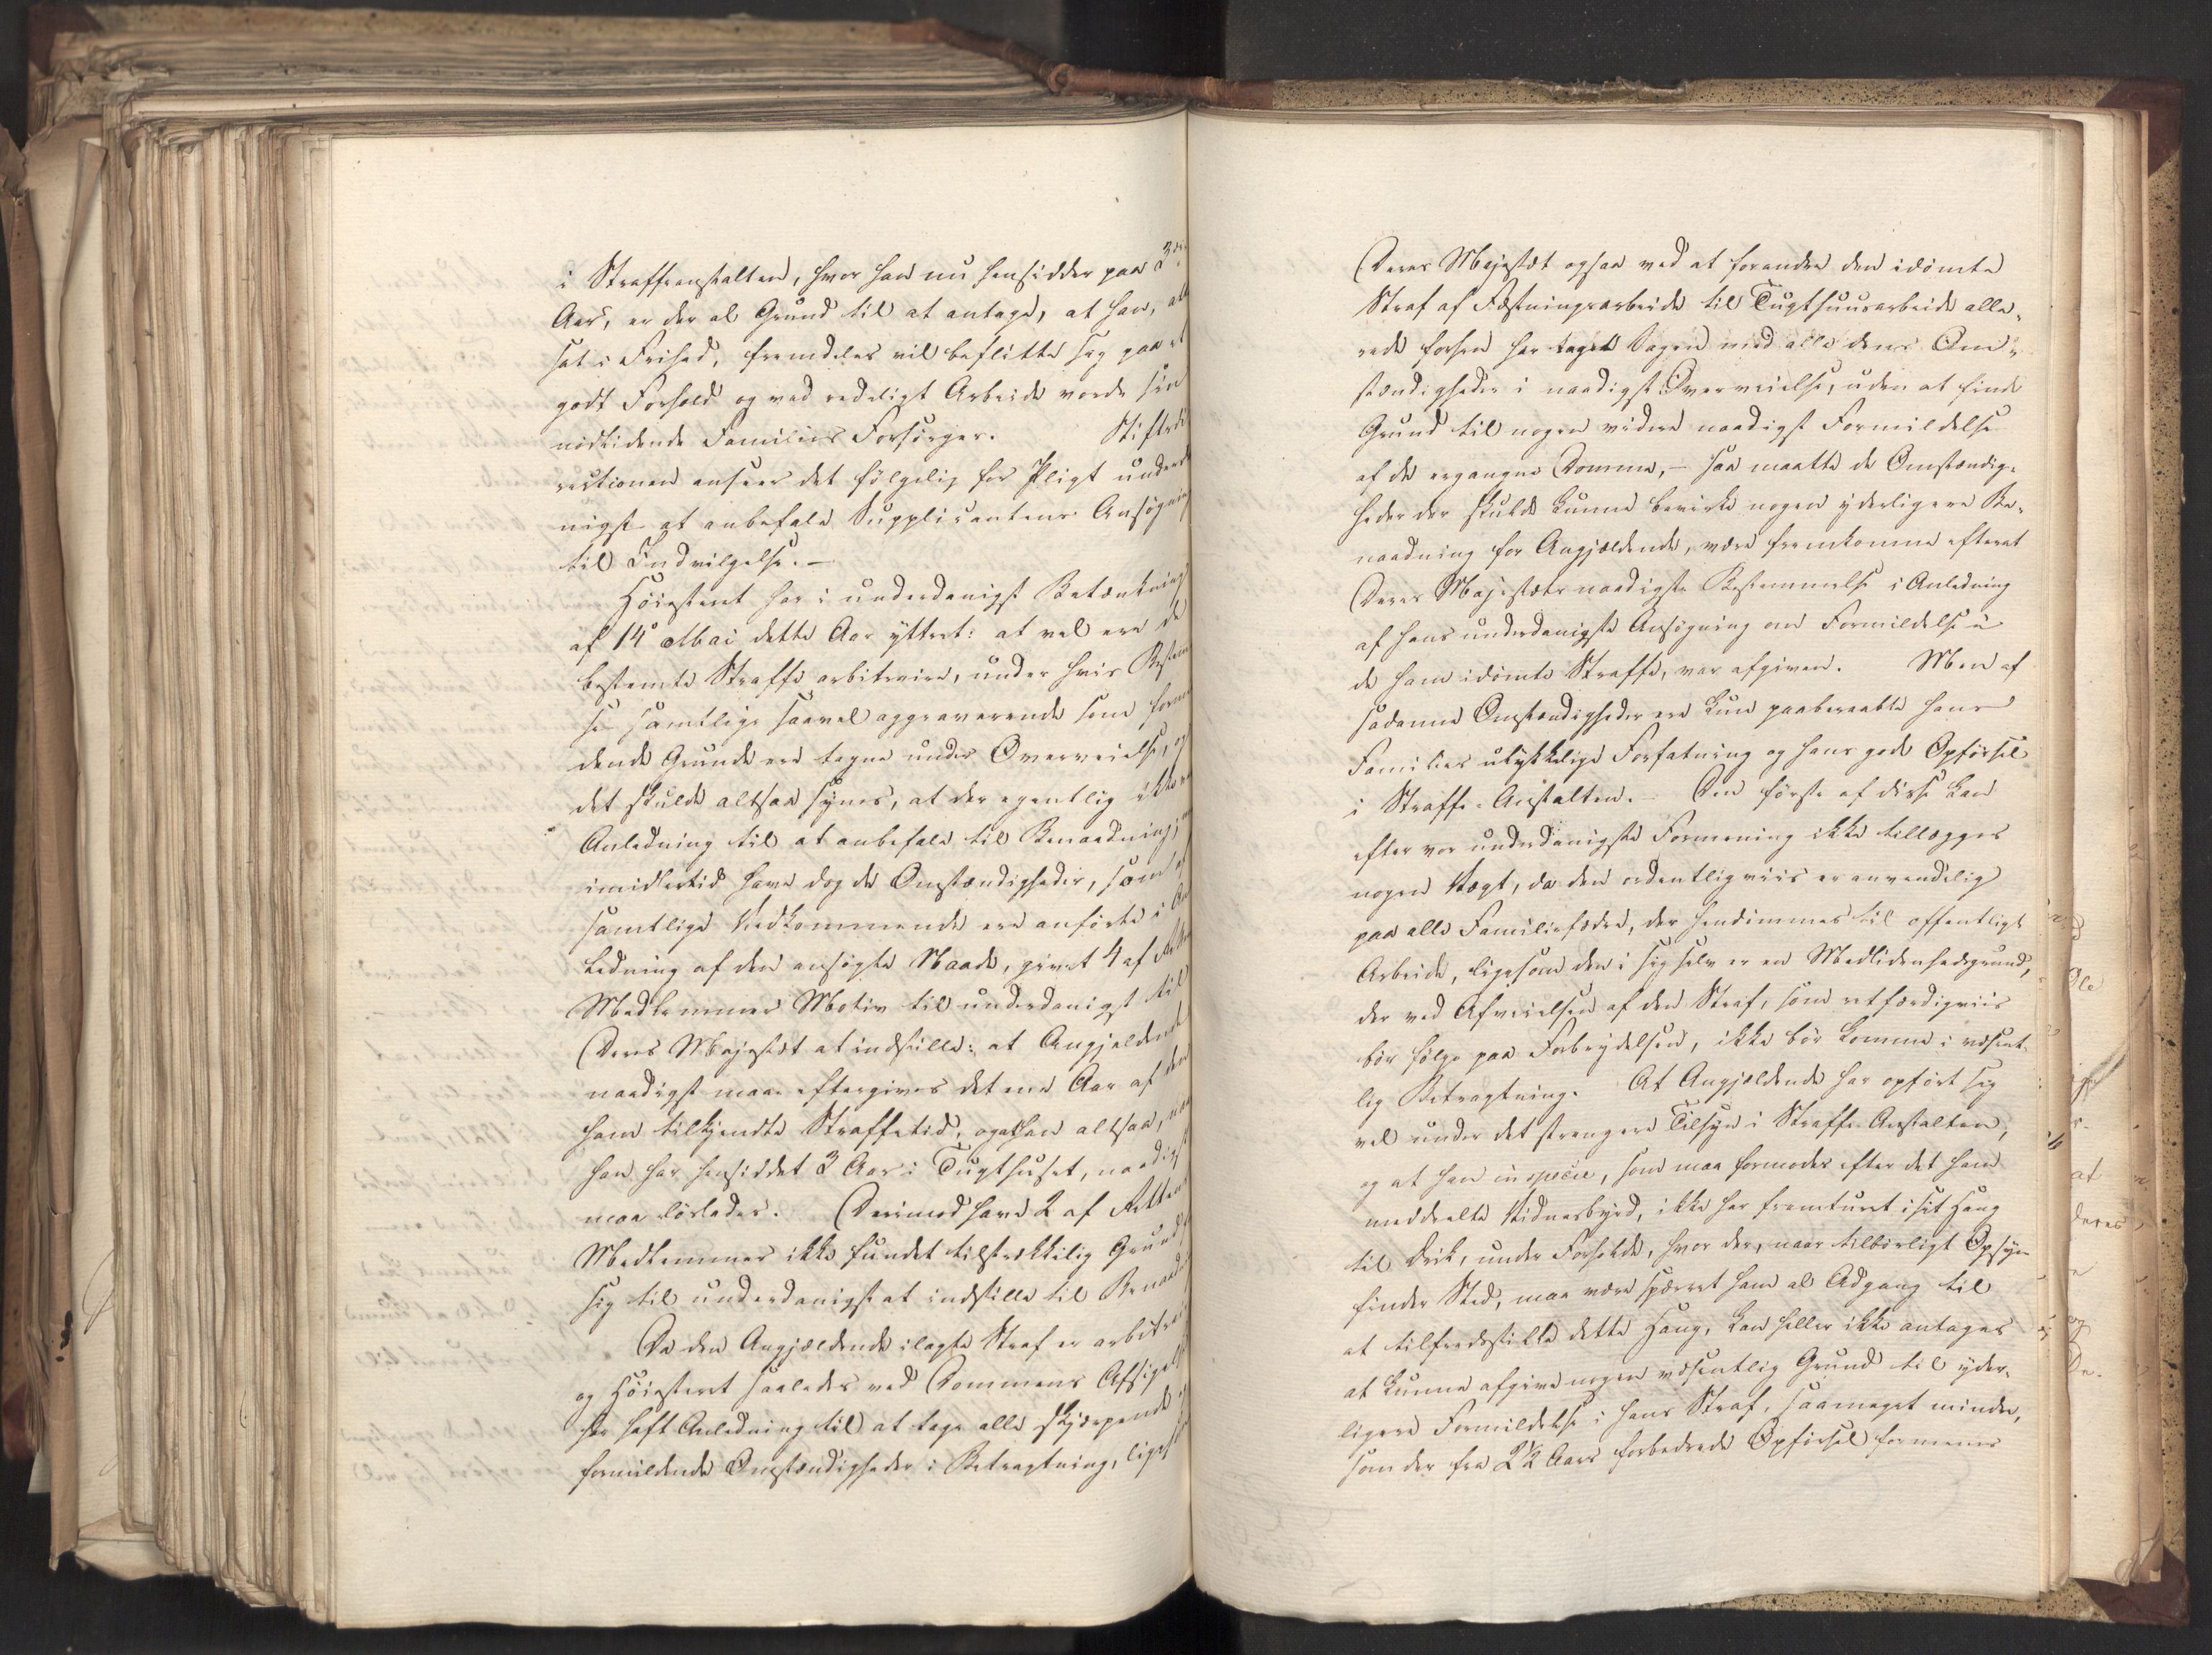 i Straffeanstalten, hvor han nu hensidder paa 3die
Aar, er der al Grund til at antage, at han,
sat i Frihed, fremdeles vil beflitte sig paa et
godt Forhold og ved redeligt Arbeide vorde sin
nødlidende Families Forsørger. Stiftsdi
rectionen anseer det følgelig for Pligt underd
nigst at anbefale Supplicantens Ansøgning
til Indvilgelse. —
Høiesteret har i underdanigst Betænkning
af 14de Mai dette Aar yttret: at vel ere de
bestemte Straffe arbitraire, under hvis Bestem
se samtlige saavel aggraverende som form
dende Grunde ere tagne under Overveielse, og
det skulde altsaa synes, at der egentlig ikke
Anledning til at anbefale til Benaadning;
imidlertid have dog de Omstændigheder, som
samtlige Vedkommende ere anførte i An
ledning af den ansøgte Naade, givet 4 af Rettens
Medlemmer Motiv til underdanigst til
Deres Majestæt at indstille: at Angjeldende
naadigst maae eftergives det ene Aar af den
ham tilkjendte Straffetid, og at han altsaa, naar
han har hensiddet 3 Aar i Tugthuset, naadigst
maa løslades. Derimod have 2 af Rettens
Medlemmer ikke fundet tilstrækkelig Grund
sig til underdanigst at indstille til Benaadn
Da den Angjældende ilagte Straf er arbitrai
og Høiesteret saaledes ved Dommens Afsigelse
har haft Anledning til at tage alle skjærpende
formildende Omstændigheder i Betragtning, liges
Deres Majestæt ogsaa ved at forandre den idømte
Straf af Fæstningsarbeide til Tugthuusarbeide alle-
rede forhen har taget Sagen med alle dens Om-
stændigheder i naadigst Overveielse, uden at finde
Grund til nogen videre naadigst Formildelse
af de ergangne Domme, — saa maatte de Omstændig-
heder der skulde kunne bevirke nogen yderligere Be-
naadning for Angjældende, være fremkomne efterat
Deres Majestæts naadigste Bestemmelse i Anledning
af hans underdanigste Ansøgning om Formildelse i
de ham idømte Straffe, var afgiven. Men af
sadanne Omstændigheder ere kun paaberaabte hans
Families ulykkelige Forfatning og hans gode Opførsel
i Straffe-Anstalten. — Den første af disse kan
efter vor underdanigste Formening ikke tillægges
nogen Vægt, da den ordentligviis er anvendelig
paa alle Familiefædre, der hendømmes til offentligt
Arbeide, ligesom den i sig selv er en Medlidenhedsgrund,
der ved Afveielsen af den Straf, som retfærdigviis
bør følge paa Forbrydelsen, ikke bør komme i væsent-
lig Betragtning. At Angjældende har opført sig
vel under det strengere Tilsyn i Straffe-Anstalten,
og at han in specie, som maa formodes efter det ham
meddeelte Vidnesbyrd, ikke har fremturet i sit Hang
til Drik, under Forholde, hvor der, naar tilbørligt Opsyn
finder Sted, maa være spærret ham al Adgang til
at tilfredsstille dette Hang, kan heller ikke antages
at kunne afgive nogen væsentlig Grund til yder-
ligere Formildelse i hans Straf, saameget mindre,
som der fra 2½ Aars forbedrede Opførsel formenes